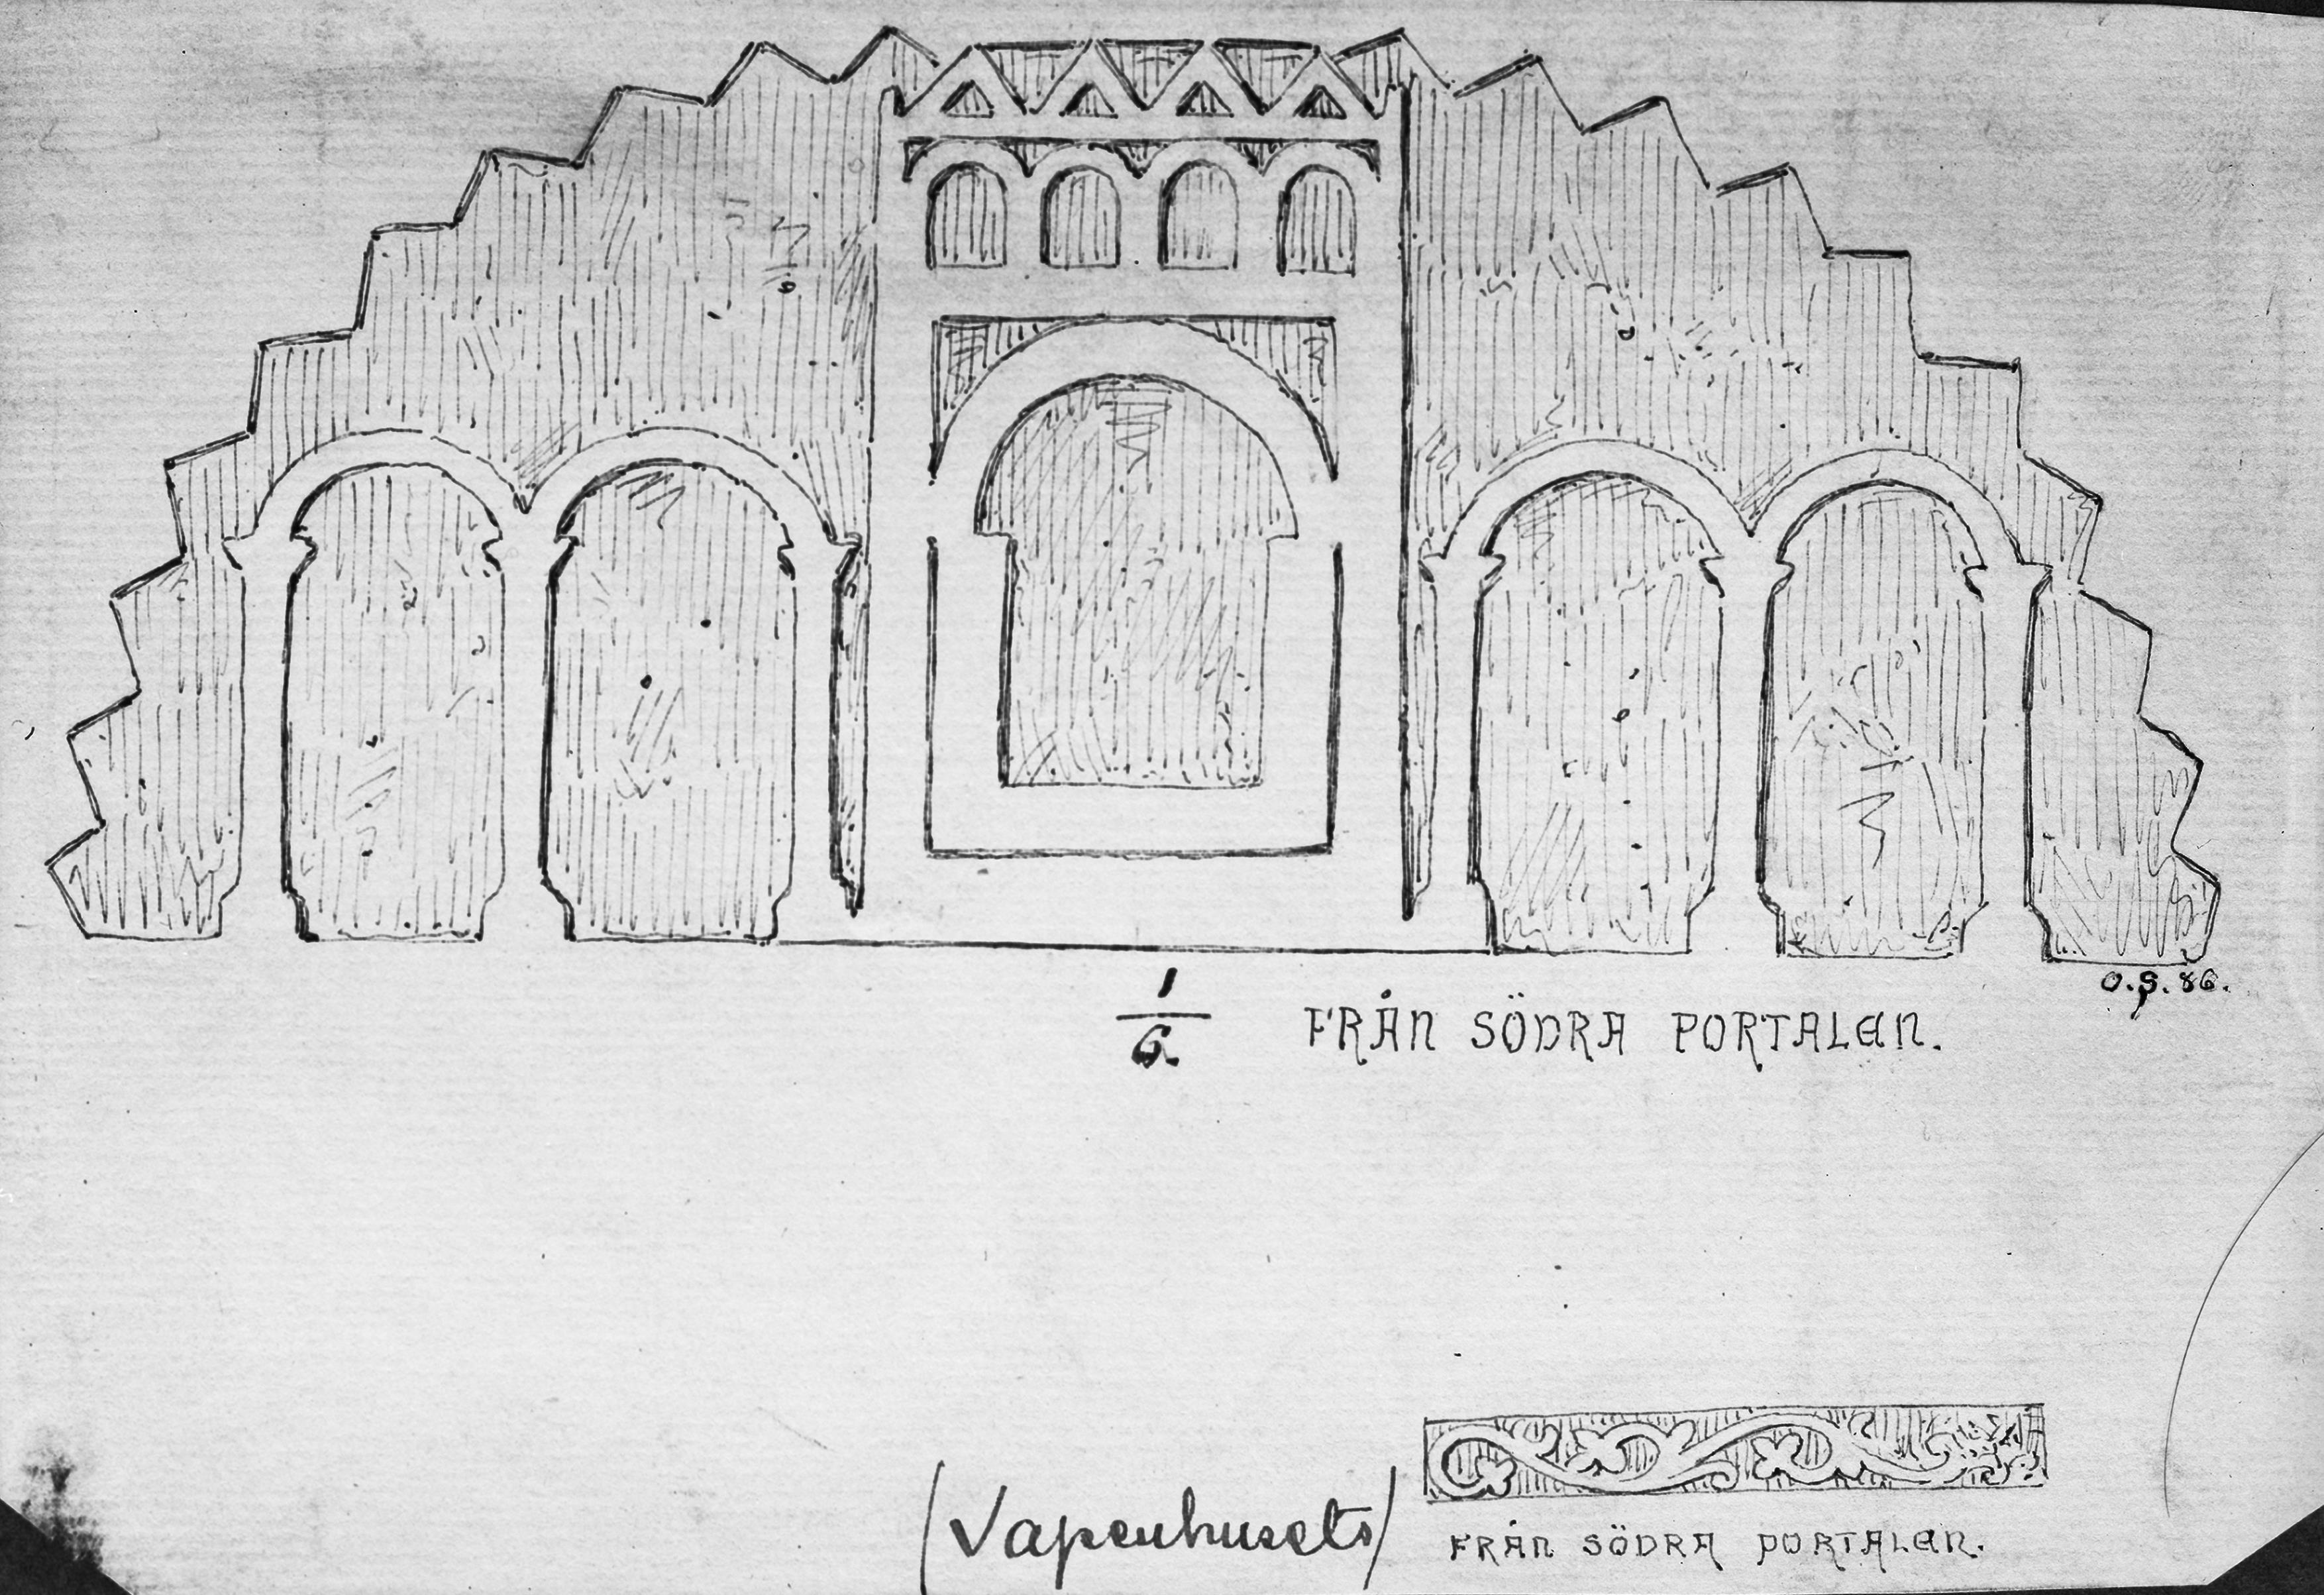 O.S. 86.
1/6 FRÅN SÖDRA PORTALEN.
(Vapenhusets)
FRÅN SÖDRA PORTALEN.